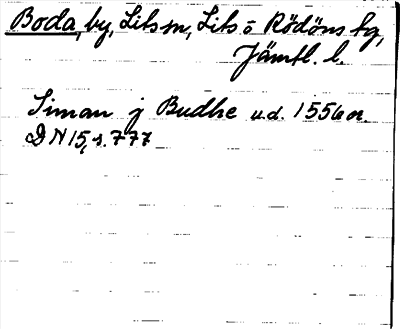 Boda, by, Lits sn, Lits o Rödöns tg,
Jämtl. l.
Siman j Budhe u.d. 1556 or.
DN 15, s. 777